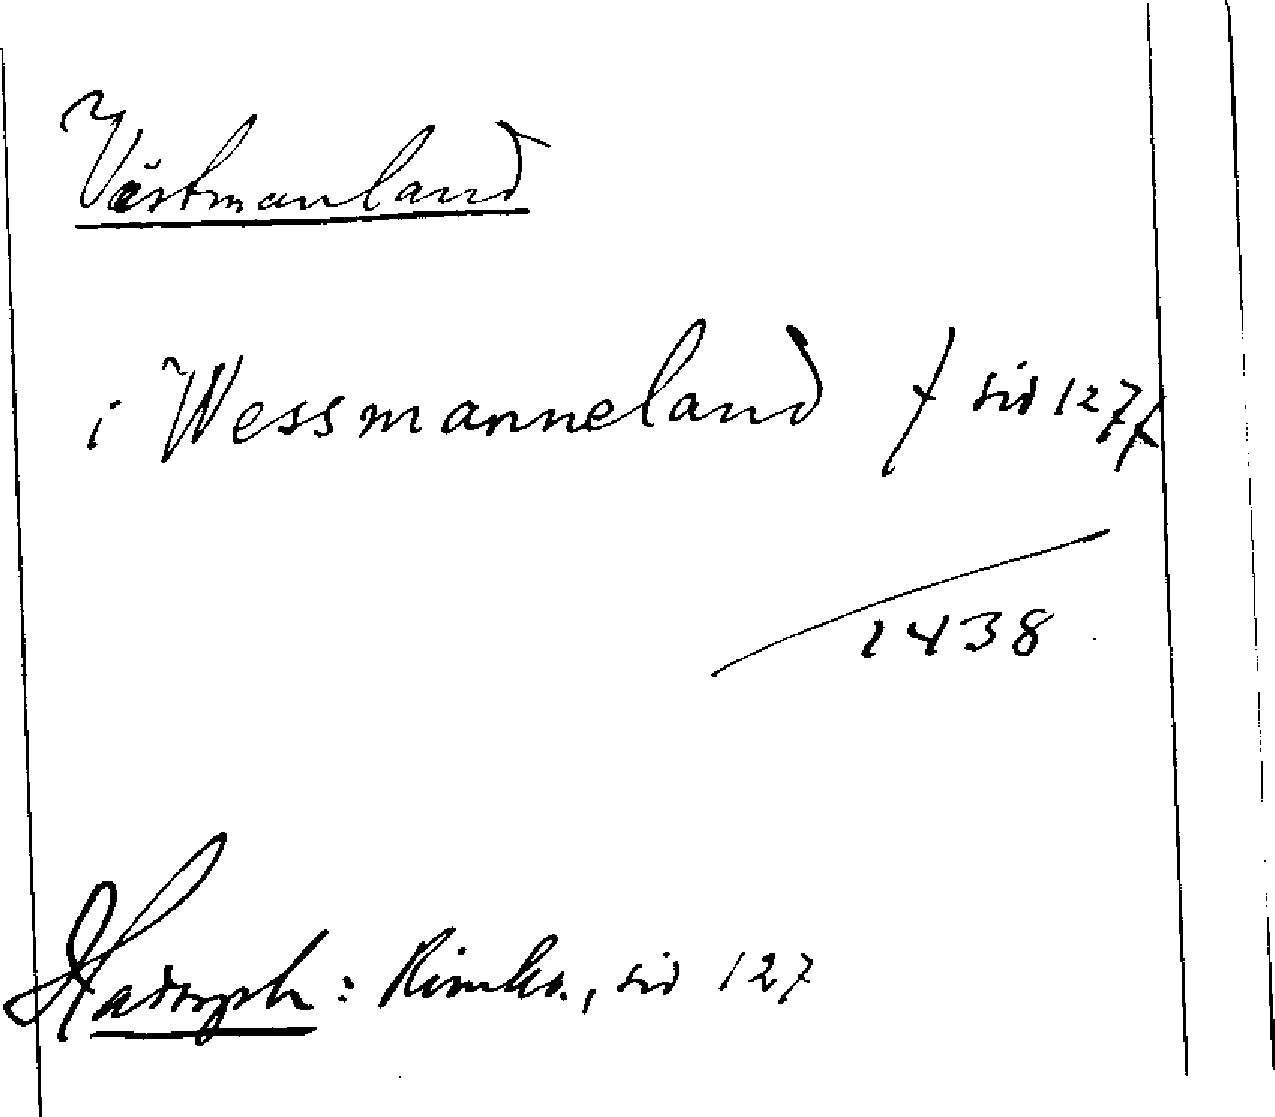 Västmanland
i Wessmanneland / sid 127/
1438
Hadorph: Rimkr., sid 127